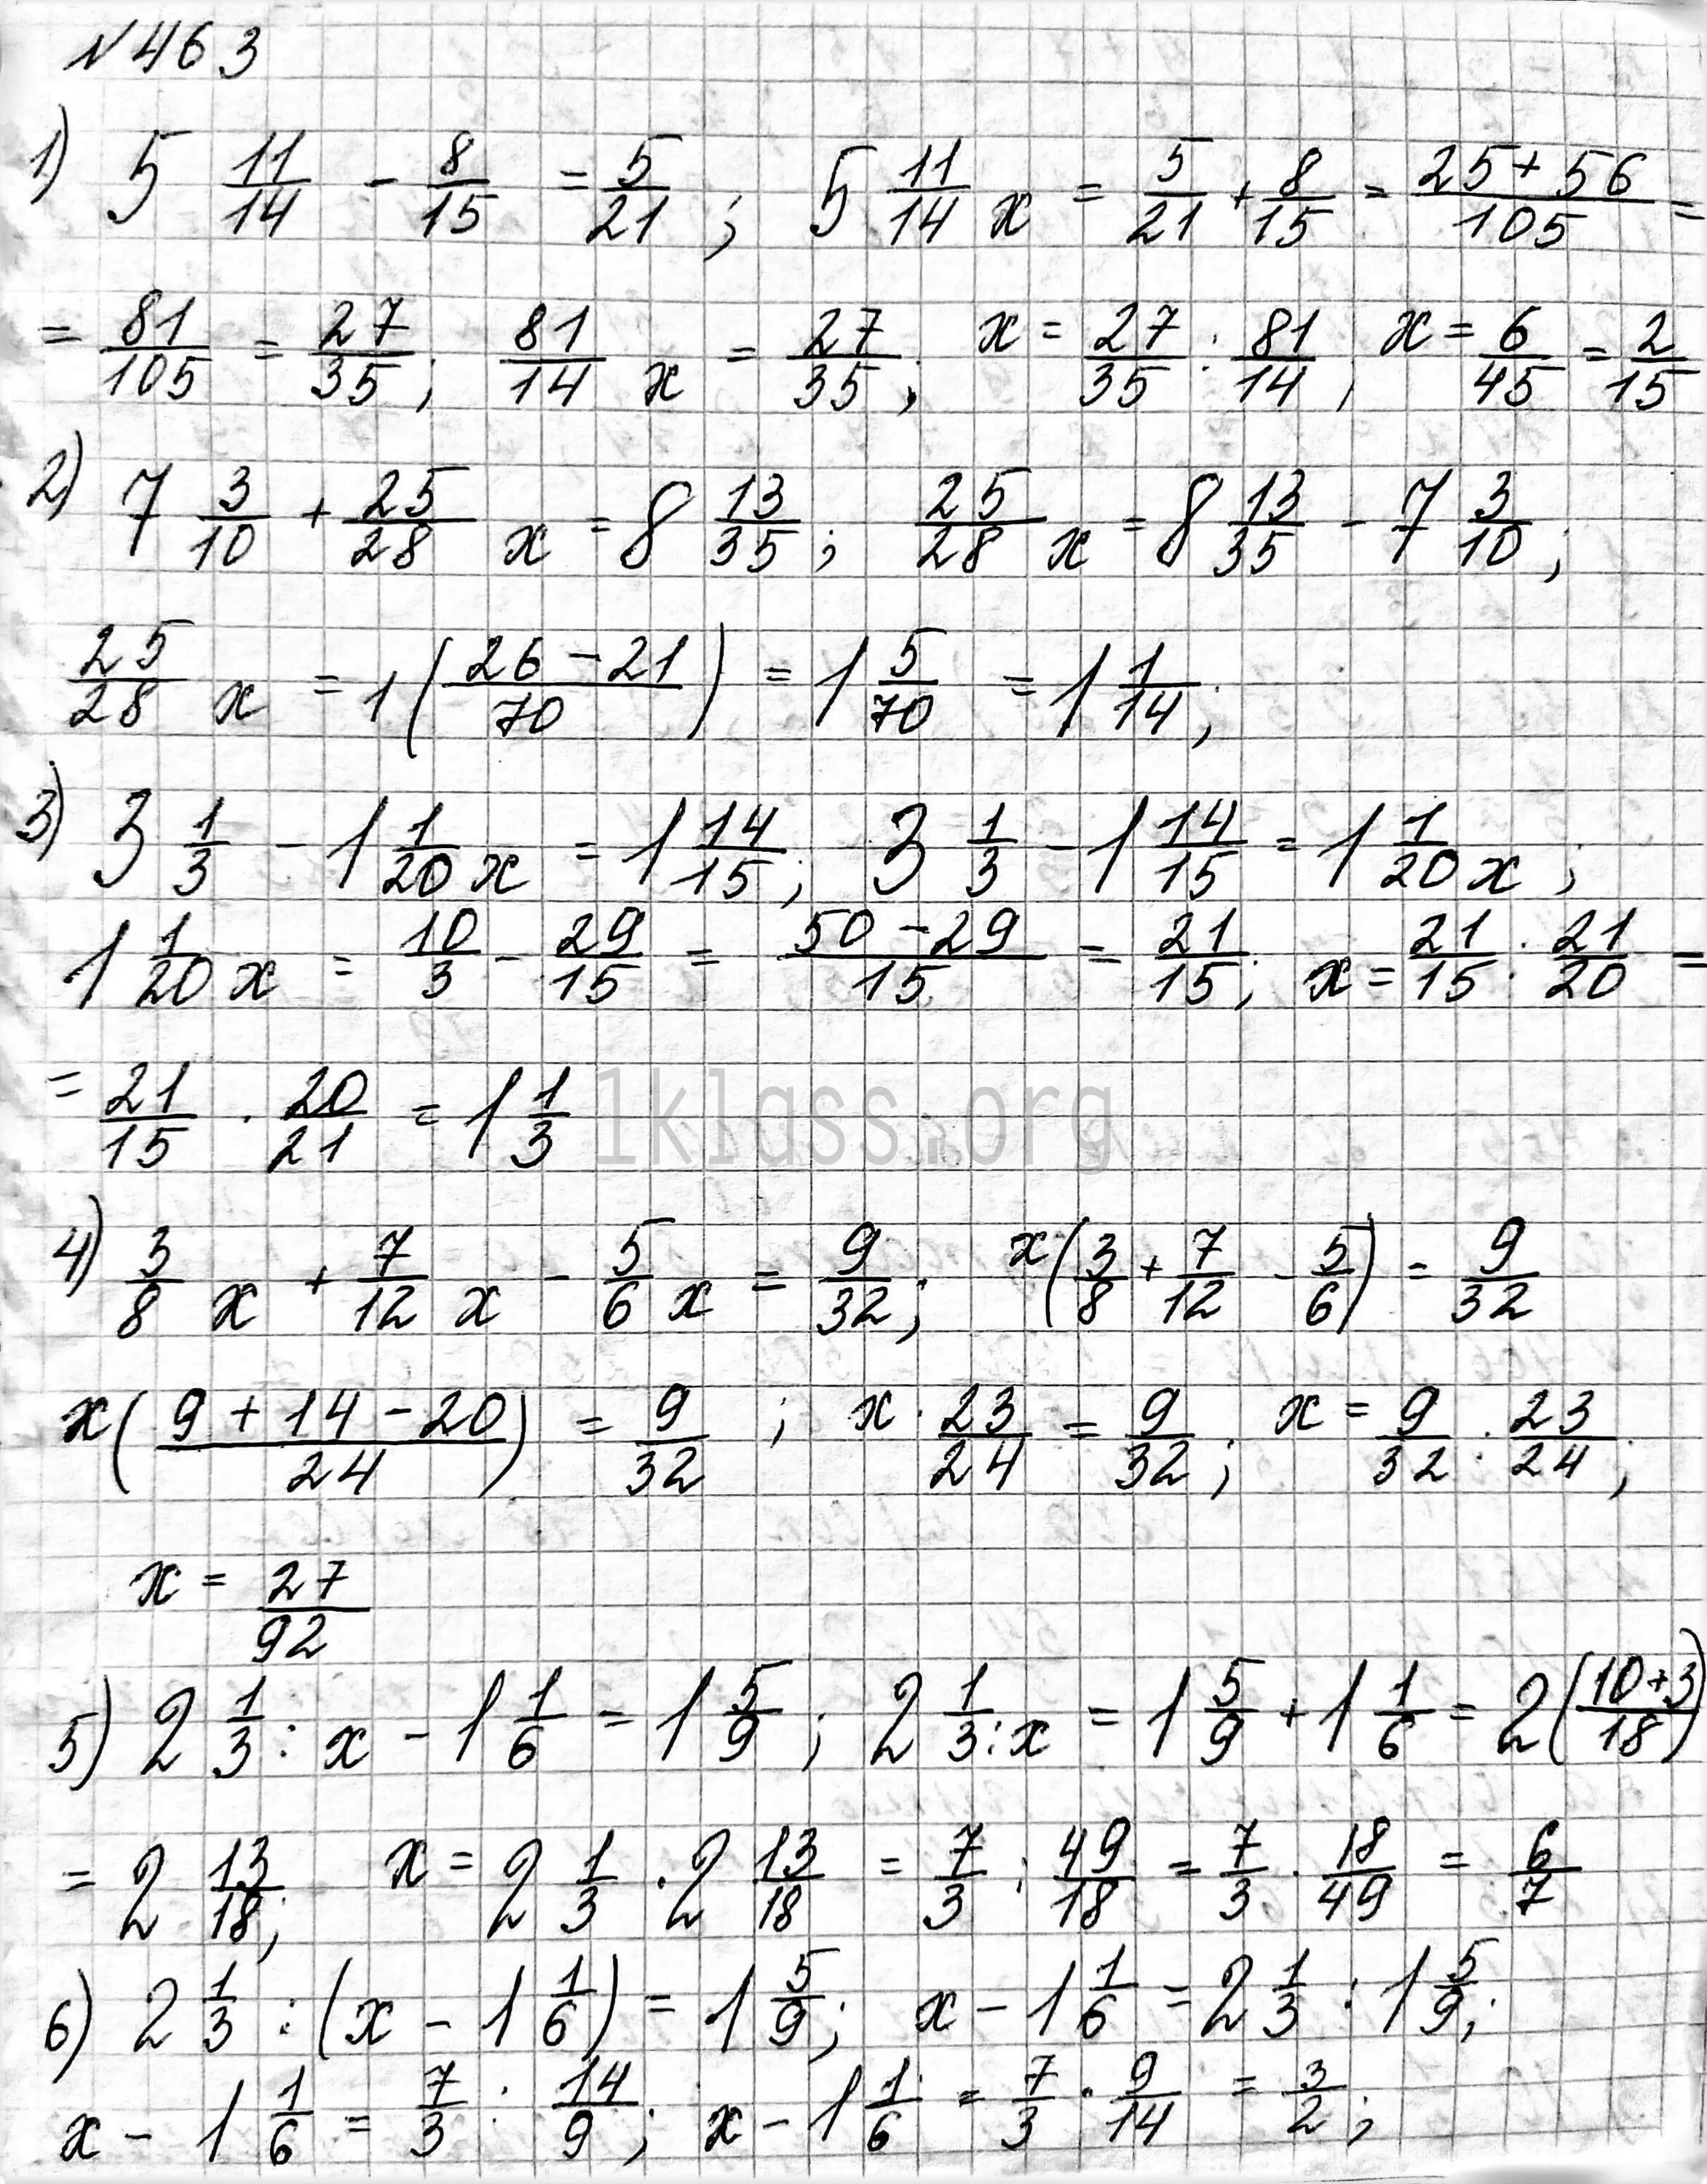 №463
1) 5 11/14 - 8/15 = 5/21 ; 5 11/14 x = 5/21 + 8/15 = (25+56)/105 =
= 81/105 = 27/35; 81/14 x = 27/35; x = 27/35 : 81/14; x = 6/45 = 2/15
2) 7 3/10 + 25/28 x = 8 13/35; 25/28 x = 8 13/35 - 7 3/10;
25/28 x = 1((26-21)/70) = 1 5/70 = 1 1/14;
3) 3 1/3 - 1 1/20 x = 1 14/15; 3 1/3 - 1 14/15 = 1 1/20 x;
1 1/20 x = 10/3 - 29/15 = (50-29)/15 = 21/15; x = 21/15 : 21/20 =
= 21/15 · 20/21 = 1 1/3
1klass.org
4) 3/8 x + 7/12 x - 5/6 x = 9/32; x(3/8 + 7/12 - 5/6) = 9/32
x((9+14-20)/24) = 9/32 ; x · 23/24 = 9/32; x = 9/32 : 23/24;
x = 27/92
5) 2 1/3 : x - 1 1/6 = 1 5/9; 2 1/3 : x = 1 5/9 + 1 1/6 = 2((10+3)/18)
= 2 13/18; x = 2 1/3 · 2 13/18 = 7/3 : 49/18 = 7/3 · 18/49 = 6/7
6) 2 1/3 : (x - 1 1/6) = 1 5/9; x - 1 1/6 = 2 1/3 : 1 5/9;
x - 1 1/6 = 7/3 : 14/9; x - 1 1/6 = 7/3 · 9/14 = 3/2;